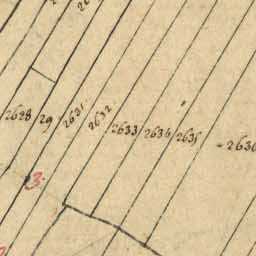 2628 29 2631 2632 2633 2634 2635 2636
3.